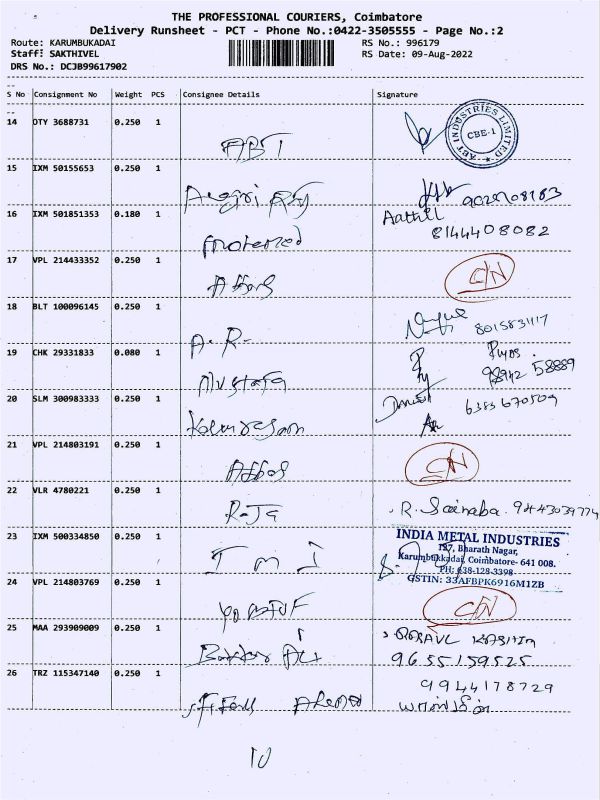 THE PROFESSIONAL COURIERS, Coimbatore
Delivery Runsheet - PCT - Phone No.:0422-3505555 - Page No.:2
Route: KARUMBUKADAI
RS No.: 996179
Staff: SAKTHIVEL
RS Date: 09-Aug-2022
DRS No.: DCJB99617902
S No Consignment No Weight PCS Consignee Details Signature
14 DTY 3688731 0.250 1
ABT
ABT INDUSTRIES LIMITED
CBE-1
15 IXM 50155653 0.250 1
16 IXM 501851353 0.180 1
Aathil
8144408082
17 VPL 214433352 0.250 1
Abbas C/N
18 BLT 100096145 0.250 1
A. R.
19 CHK 29331833 0.080 1
Mustafa 98942 58889
20 SLM 300983333 0.250 1
6383670509
21 VPL 214803191 0.250 1
Abbas C/N
22 VLR 4780221 0.250 1
R. Sainaba. 9443039774
23 IXM 500334850 0.250 1
T M I
INDIA METAL INDUSTRIES
127, Bharath Nagar,
Karumbukkadai, Coimbatore- 641 008.
PH: 638-128-3398
GSTIN: 33AFBPK6916M1ZB
24 VPL 214803769 0.250 1
C/N
25 MAA 293909009 0.250 1
9655159525
26 TRZ 115347140 0.250 1
9944178729
10